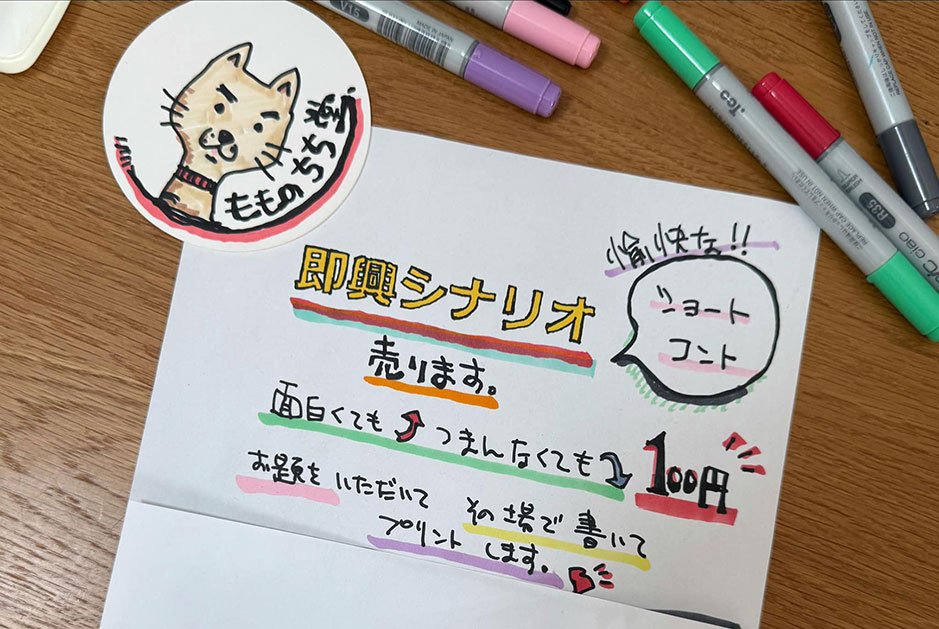 もものちち
愉快な!!
ショート
コント
即興シナリオ
売ります。
面白くても つまんなくても 100円
お題を いただいて その場で 書いて
プリント します。
V16
R35
ciao
Too